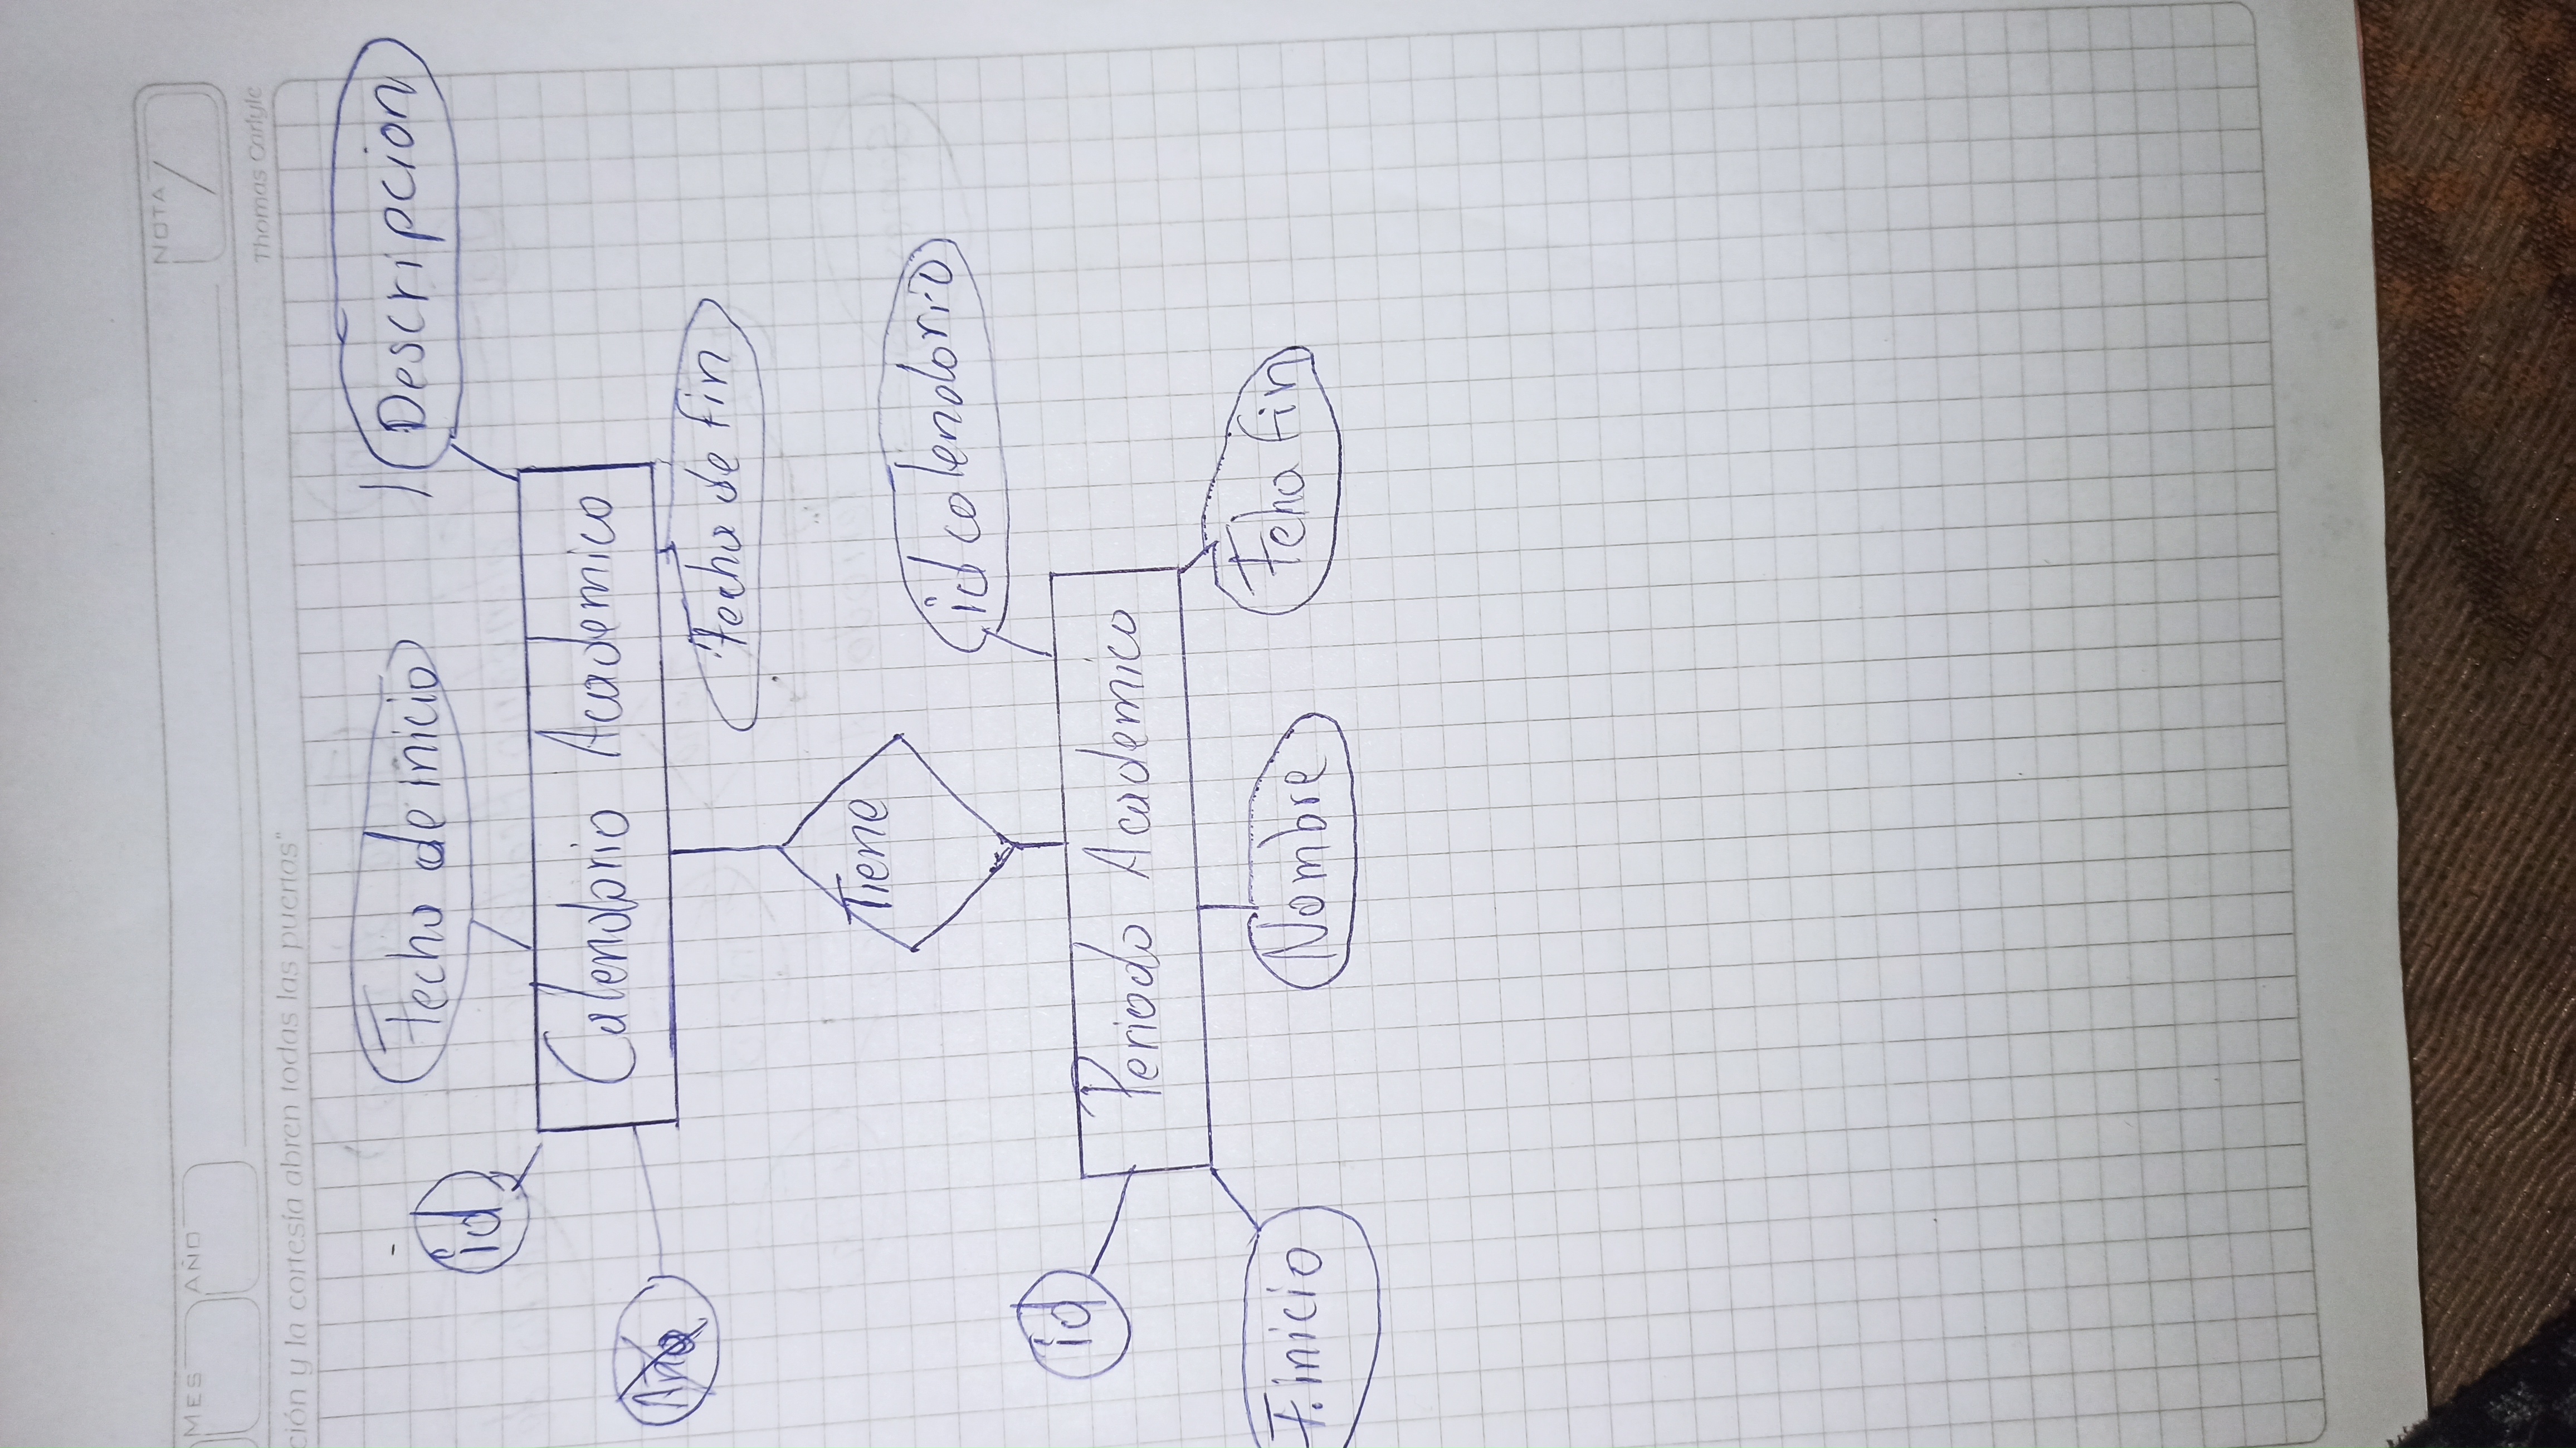 MES AÑO NOTA
Thomas Carlyle
ción y la cortesía abren todas las puertas"
Fecha de inicio
Descripcion
id
Calendario Academico
Año
Fecha de fin
Tiene
id calendario
id
Periodo Academico
F. inicio
Nombre
Feha fin